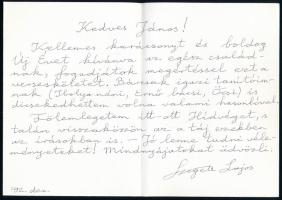 Kedves János!
Kellemes karácsonyt és boldog
Új Évet kívánva az egész család-
nak, fogadjátok megértéssel ezt a
verseskötetet. Bárcsak igazi tanítóim-
nak (Ibolyanéni, Ernő bácsi, Öcsi) is
dicsekedhettem volna valami hasonlóval.
Fölemlegetem itt-ott Hidvéget, s
talán visszaköszön az a táj ezekben
az írásokban is. – Jó lenne tudni véle-
ményeteket! Mindnyájatokat üdvözli:
Lajos
'92. dec.